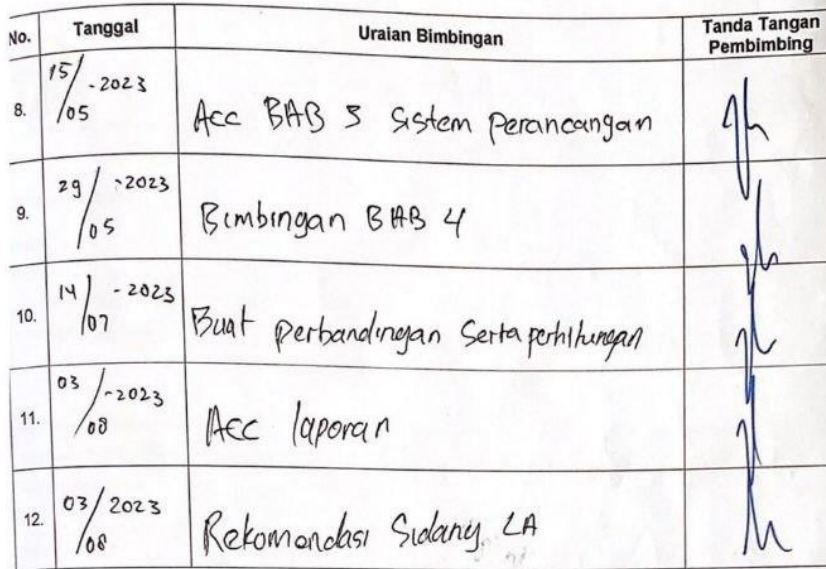 No. Tanggal Uraian Bimbingan Tanda Tangan Pembimbing
8. 15/05-2023 Acc BAB 3 Sistem Perancangan
9. 29/05-2023 Bimbingan BAB 4
10. 14/07-2023 Buat perbandingan Serta perhitungan
11. 03/08-2023 Acc laporan
12. 03/08 2023 Rekomendasi Sidang LA